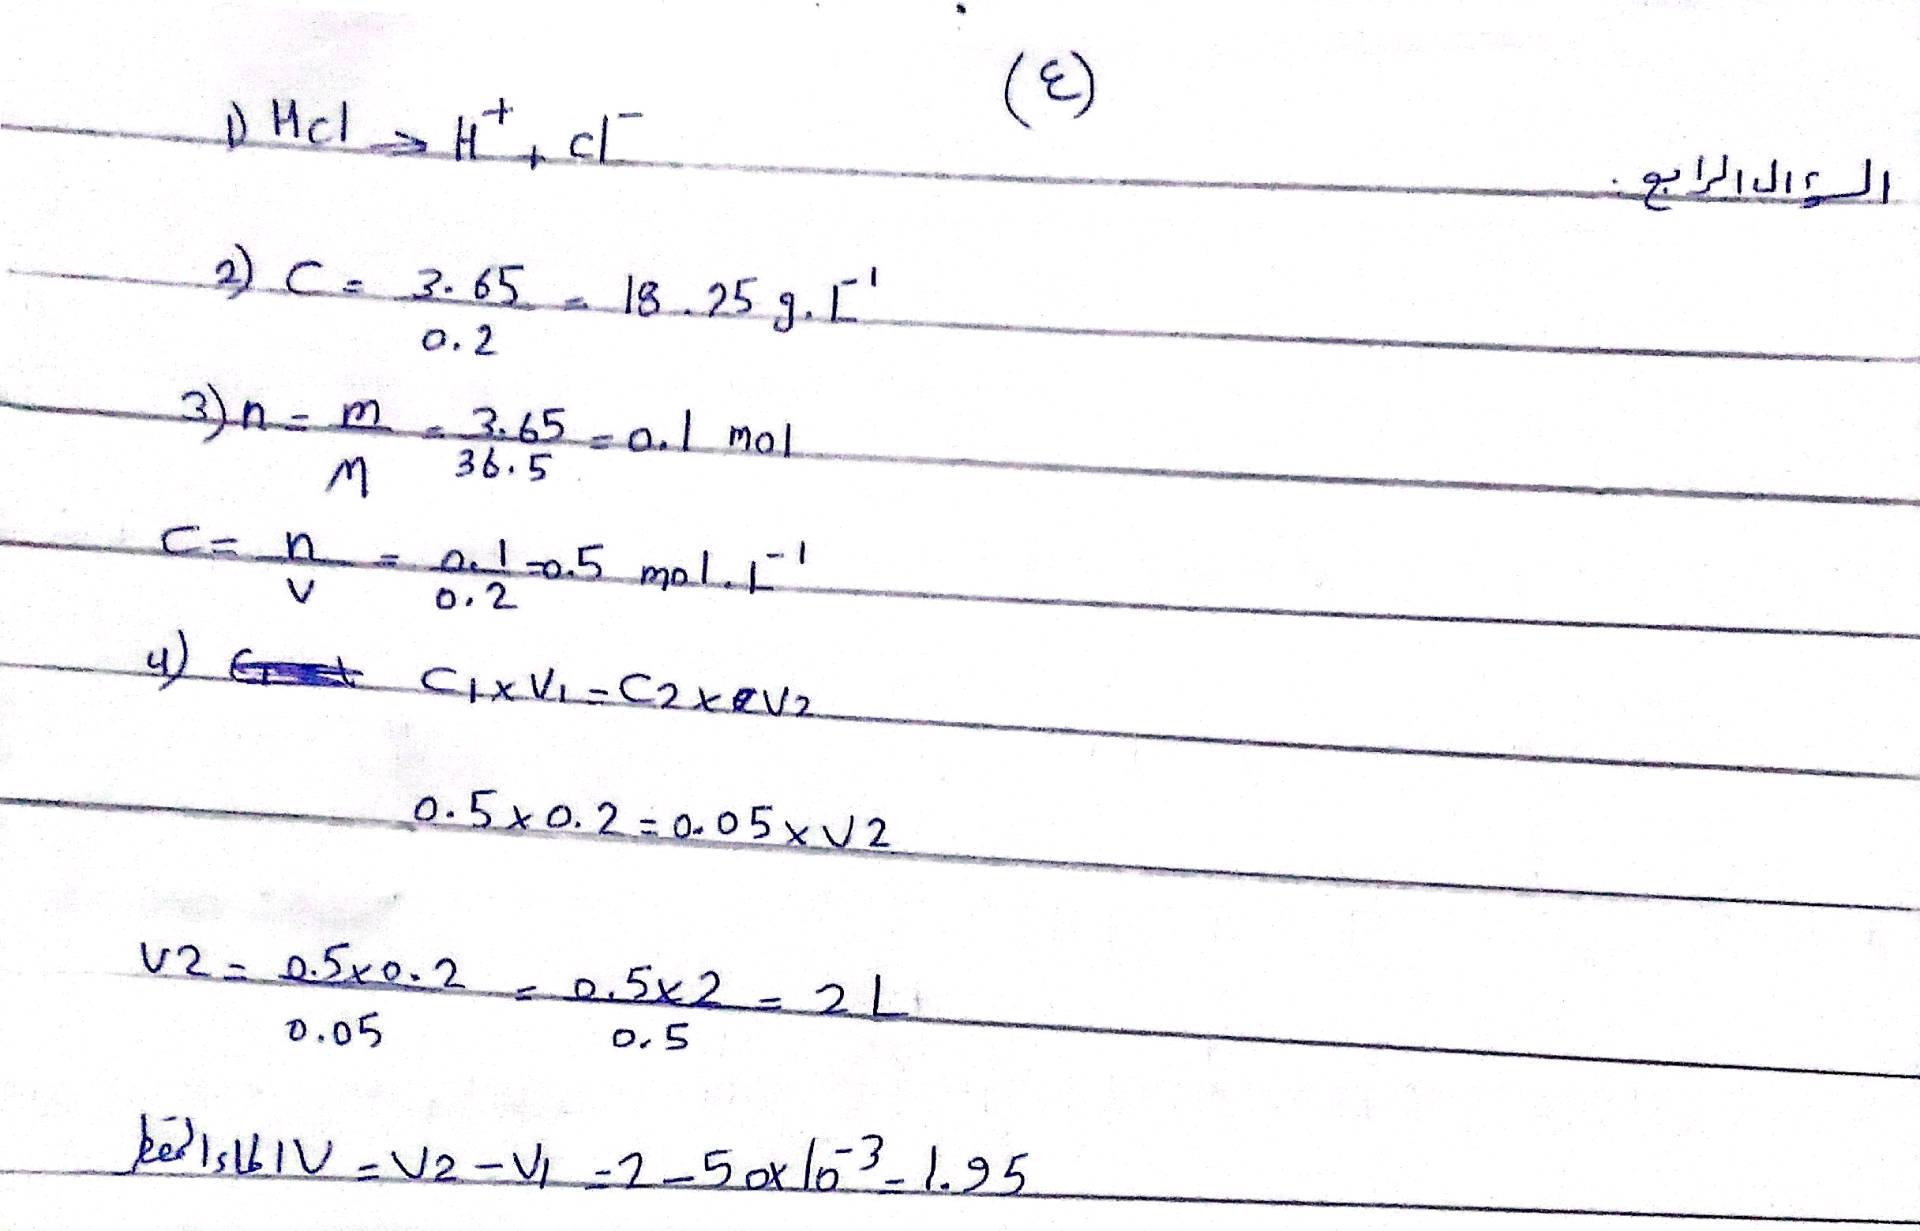 (٤)
السؤال الرابع.
1) Hcl → H⁺ + cl⁻
2) C = 3.65 / 0.2 = 18.25 g.L⁻¹
3) n = m / M = 3.65 / 36.5 = 0.1 mol
C = n / v = 0.1 / 0.2 = 0.5 mol.L⁻¹
4) C1 x V1 = C2 x V2
0.5 x 0.2 = 0.05 x V2
V2 = 0.5x0.2 / 0.05 = 0.5x2 / 0.5 = 2 L
V الماء = V2 - V1 = 2 - 50x10⁻³ = 1.95